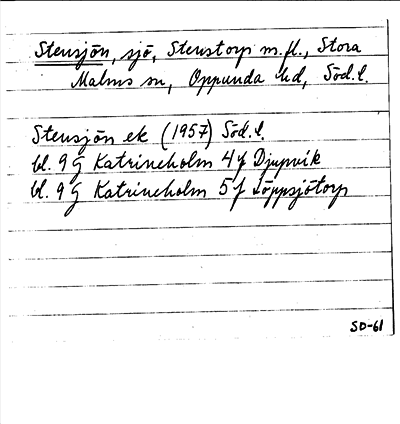 Stensjön, sjö, Stenstorp m.fl., Stora
Malms sn, Oppunda hd, Söd.l.
Stensjön ek (1957) Söd.l.
bl. 9 G Katrineholm 4 f Djupvik
bl. 9 G Katrineholm 5 f Löppsjötorp
SD-61